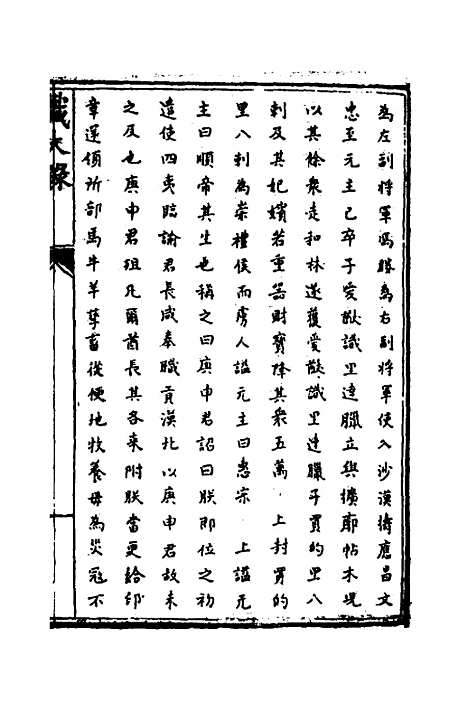 為左副將軍馮勝為右副將軍使入沙漠擣應昌文
忠至元主已卒子愛猷識里達臘立與擴廓帖木児
以其餘衆走和林遂獲愛猷識里達臘子買的里八
剌及其妃嬪若重寳財寳降其衆五萬上封買的
里八剌為崇禮侯而虜人謚元主曰惠宗上謚元
主曰順帝其生也稱之曰庚申君詔曰朕即位之初
遣使四夷臨諭君長咸奉職貢漠北以庚申君故未
之及也庚申君殂凡爾酋長其各来附朕當更給印
章還領所部馬牛羊孳畜從便地牧養毋為災冦不
識大錄